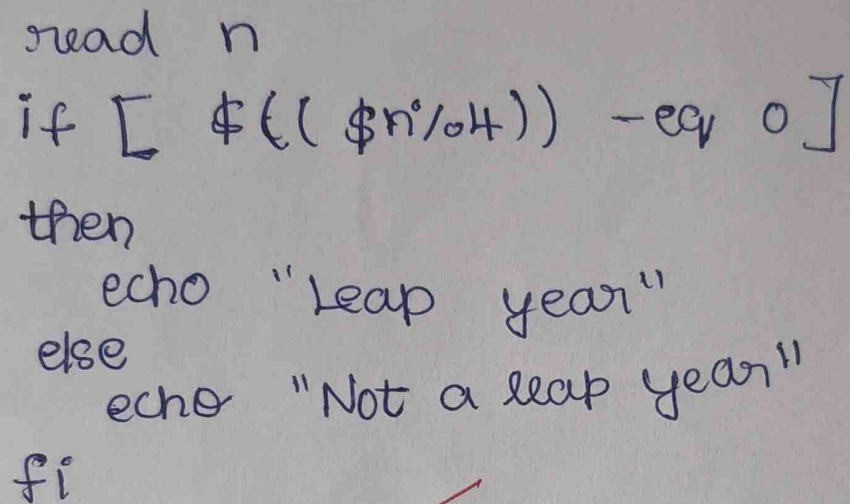 read n
if [ $(( $n%4)) -eq 0]
then
echo "Leap year"
else
echo "Not a leap year"
fi